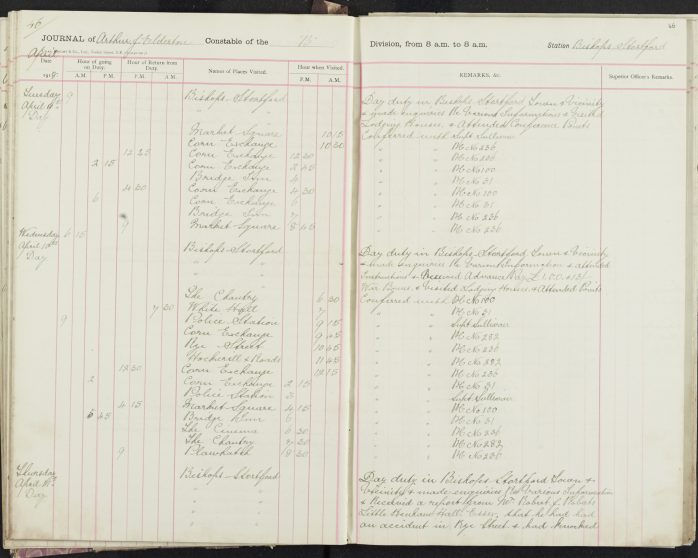 46
JOURNAL of Arthur J. Elderton Constable of the "B"
April
Date
Hour of going on Duty.
Hour of Return from Duty.
Names of Places Visited.
Hour when Visited.
A.M. P.M. A.M. P.M. P.M. A.M.
Tuesday 9 Bishops Stortford
April 9th " "
Day " "
Market Square 10 15
Corn Exchange 10 30
12 25 Corn Exchange 12 20
2 15 Corn Exchange 2 45
Bridge Inn 4
4 30 Corn Exchange 4 30
6 Corn Exchange 6
Bridge Inn 7
9 Market Square 8 45
Wednesday 6 15
April 10th Bishops-Stortford
Day " "
" "
" "
The Chantry 6 30
7 30 White Hall 7
9 Police Station 9 15
Corn Exchange 9 45
Rye Street 10 45
Hockerill & Roads 11 45
12 30 Corn Exchange 12 15
2 Corn Exchange 2 15
Police Station 3
4 15 Market-Square 4 15
5 45 Bridge Inn 6
The Cinema 6 30
The Chantry 7 30
9 Plawhatch 8 30
Thursday Bishops-Stortford
April 11th " "
Day " "
" "
" "
46
Division, from 8 a.m. to 8 a.m.
Station Bishops Stortford
REMARKS, &c.
Superior Officer's Remarks.
Day duty in Bishops Stortford Town & Vicinity
& made enquiries Re Various Informations & Visited
Lodging Houses, & Attended Conference Points
Conferred with Supt Sullivan
" " P.C. No 236
" " P.C. No 206
" " P.C. No 100
" " P.C. No 31
" " P.C. No 100
" " P.C. No 31
" " P.C. No 236
" " P.C. No 236
Day duty in Bishops-Stortford Town & Vicinity
& made enquiries Re Various Information & attended
Instructions & Received Advance Pay
War Bonus, & Visited Lodging Houses, & Attended Points
Conferred with P.C. No 100
" " P.C. No 31
" " Supt Sullivan
" " P.C. No 282
" " P.C. No 236
" " P.C. No 282
" " P.C. No 236
" " P.C. No 31
" " Supt Sullivan
" " P.C. No 100
" " P.C. No 31
" " P.C. No 236
" " P.C. No 282
" " P.C. No 236
Day duty in Bishops Stortford Town &
Vicinity & made enquiries Re Various Information
& Received a report from Mr Robert S.
Little Hall Essex, that he had had
an accident in Rye Street & had knocked